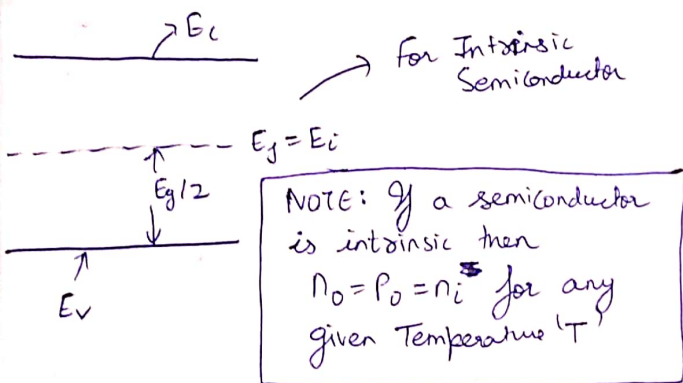 Ec
For Intrinsic
Semiconductor
Ef = Ei
Eg/2
NOTE: If a semiconductor
is intrinsic then
n₀ = P₀ = nᵢ for any
given Temperature 'T'
Ev